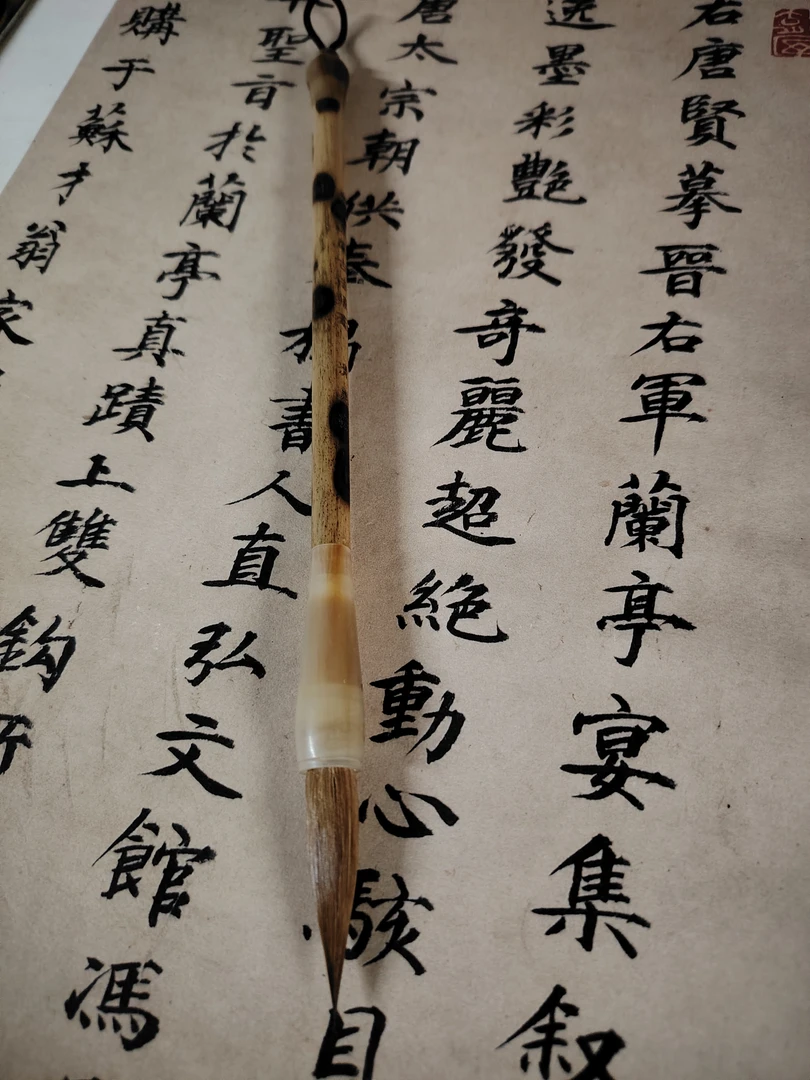 右唐賢摹晉右軍蘭亭宴集叙
逸墨彩艷發奇麗超絶動心駭目
唐太宗朝供奉搨書人直弘文館馮
聖旨於蘭亭真蹟上雙鈎所
購于蘇才翁家